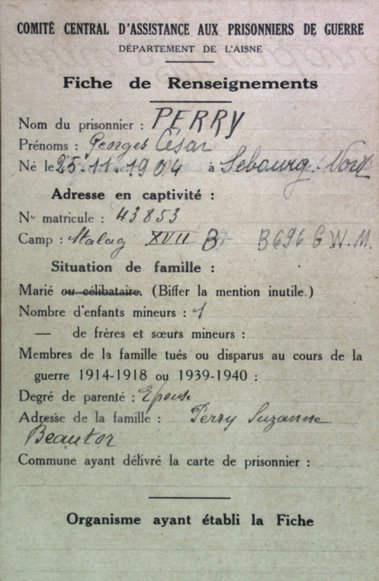 COMITÉ CENTRAL D'ASSISTANCE AUX PRISONNIERS DE GUERRE
DÉPARTEMENT DE L'AISNE
Fiche de Renseignements
Nom du prisonnier : PERRY
Prénoms : Georges César
Né le 25.11.1904 à Sebourg. Nord
Adresse en captivité :
No matricule : 43853
Camp : Stalag XVII B B696 G.W.M.
Situation de famille :
Marié ou célibataire. (Biffer la mention inutile.)
Nombre d'enfants mineurs : 1
— de frères et sœurs mineurs :
Membres de la famille tués ou disparus au cours de la
guerre 1914-1918 ou 1939-1940 :
Degré de parenté : Epouse
Adresse de la famille : Perry Suzanne
Beautor
Commune ayant délivré la carte de prisonnier :
Organisme ayant établi la Fiche